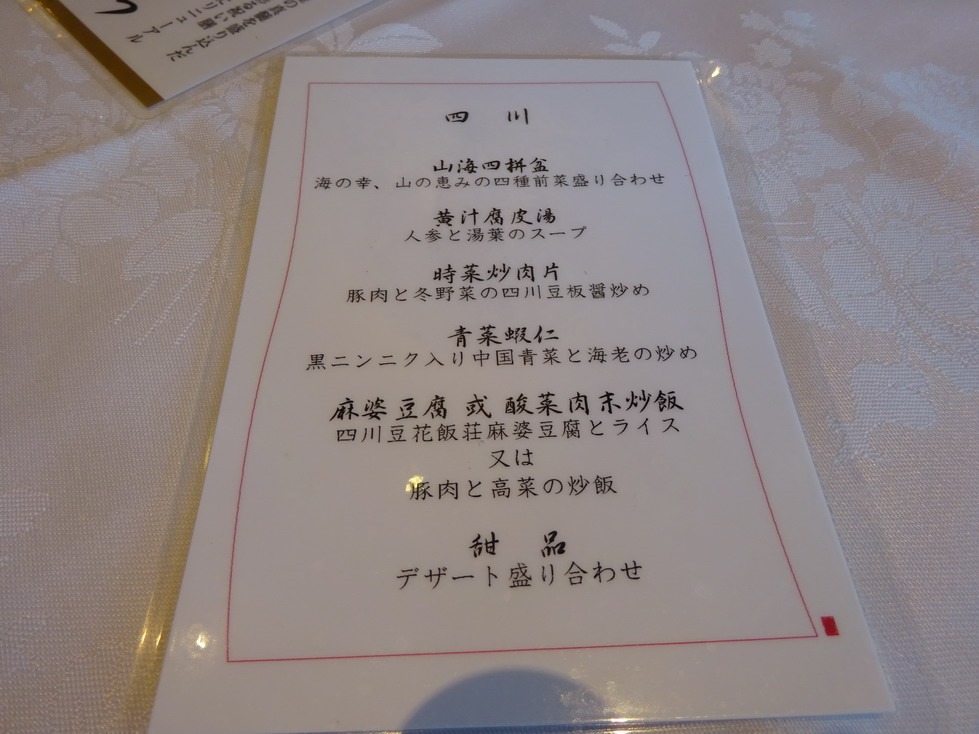 の真髄を盛り込んだ
ニューアル
四 川
山海四拼盆
海の幸、山の恵みの四種前菜盛り合わせ
黄汁腐皮湯
人参と湯葉のスープ
時菜炒肉片
豚肉と冬野菜の四川豆板醤炒め
青菜蝦仁
黒ニンニク入り中国青菜と海老の炒め
麻婆豆腐 或 酸菜肉末炒飯
四川豆花飯荘麻婆豆腐とライス
又は
豚肉と高菜の炒飯
甜 品
デザート盛り合わせ